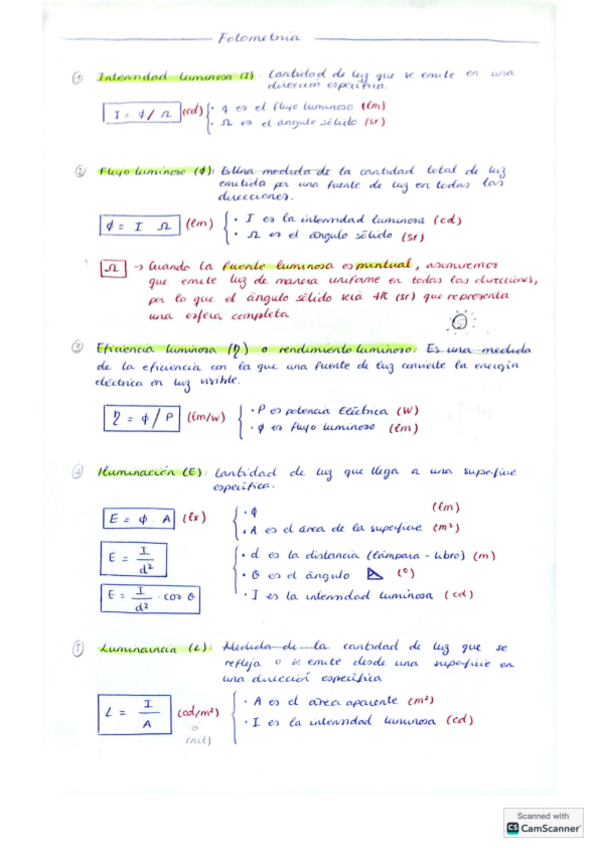 Fotometría
① Intensidad luminosa (I): Cantidad de luz que se emite en una
dirección específica.
I = ϕ/Ω (cd) · ϕ es el flujo luminoso (lm)
· Ω es el ángulo sólido (sr)
② Flujo luminoso (ϕ): Es una medida de la cantidad total de luz
emitida por una fuente de luz en todas las
direcciones.
ϕ = I · Ω (lm) · I es la intensidad luminosa (cd)
· Ω es el ángulo sólido (sr)
Ω → Cuando la fuente luminosa es puntual, asumiremos
que emite luz de manera uniforme en todas las direcciones,
por lo que el ángulo sólido será 4π (sr) que representa
una esfera completa
③ Eficiencia luminosa (η) o rendimiento luminoso: Es una medida
de la eficiencia con la que una fuente de luz convierte la energía
eléctrica en luz visible.
η = ϕ/P (lm/w) · P es potencia Eléctrica (W)
· ϕ es flujo luminoso (lm)
④ Iluminación (E): Cantidad de luz que llega a una superficie
específica.
E = ϕ · A (lx) · ϕ (lm)
· A es el área de la superficie (m²)
E = I/d² · d es la distancia (lámpara - libro) (m)
· θ es el ángulo (°)
E = I/d² · cos θ · I es la intensidad luminosa (cd)
⑤ Luminancia (L): Medida de la cantidad de luz que se
refleja o se emite desde una superficie en
una dirección específica
L = I/A (cd/m²) · A es el área aparente (m²)
o · I es la intensidad luminosa (cd)
(nit)
Scanned with
CS CamScanner